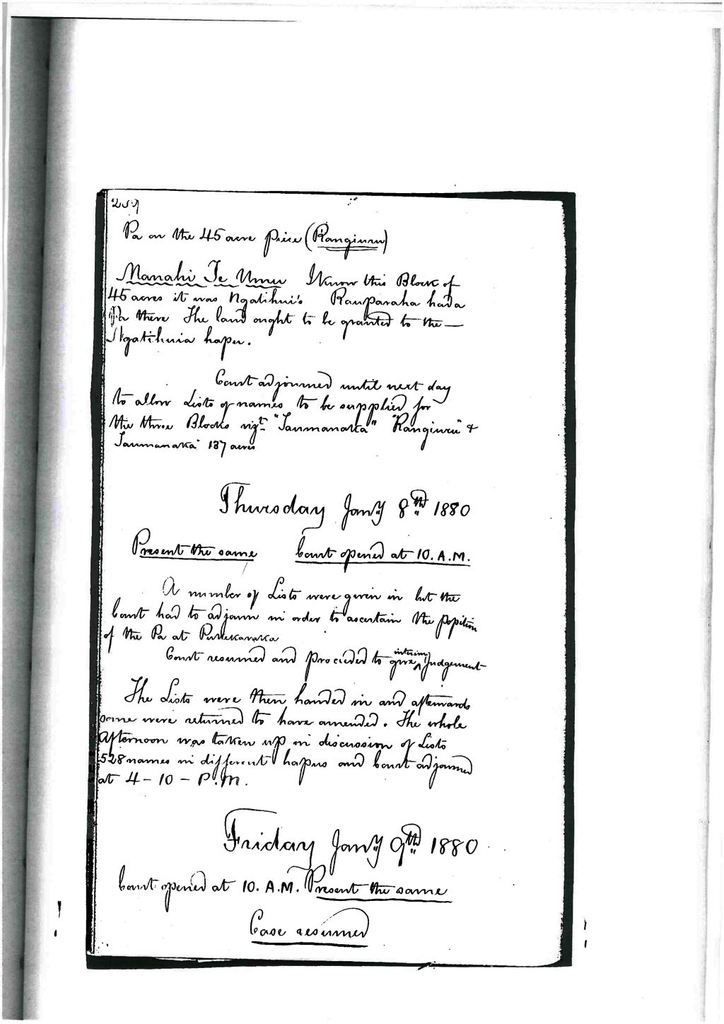 259
Pa on the 45 acre piece (Rangiuru)
Manahi Te Umu I know this Block of
45 acres it was Ngatihui's Rauparaha had a
Pa there The land ought to be granted to the —
Ngatihuia hapu.
Court adjourned until next day
to allow Lists of names to be supplied for
the three Blocks vizt. "Taumanaka" "Rangiuru" &
Taumanaka" 137 acres
Thursday Jany 8th 1880
Present the same Court opened at 10. A.M.
A number of Lists were given in but the
Court had to adjourn in order to ascertain the position
of the Pa at
Court resumed and proceeded to give interim Judgement
The Lists were then handed in and afterwards
some were returned to have amended. The whole
afternoon was taken up in discussion of Lists
528 names in different hapus and Court adjourned
at 4-10-P.M.
Friday Jany 9th 1880
Court opened at 10. A.M. Present the same
Case resumed